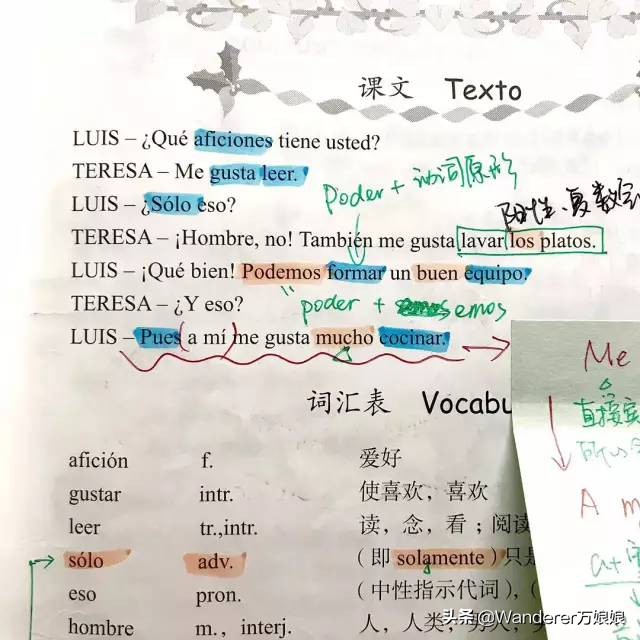 课文 Texto
LUIS – ¿Qué aficiones tiene usted?
TERESA – Me gusta leer.
LUIS – ¿Sólo eso?
poder + 动词原形
阳性、复数
TERESA – ¡Hombre, no! También me gusta lavar los platos.
LUIS – ¡Qué bien! Podemos formar un buen equipo.
TERESA – ¿Y eso?
" poder + emos
LUIS – Pues a mí me gusta mucho cocinar.
Me
直接
所以
A m
a +
词汇表 Vocabu
afición f. 爱好
gustar intr. 使喜欢，喜欢
leer tr.,intr. 读，念，看；阅读
sólo adv. （即 solamente）只是
eso pron. （中性指示代词），（
hombre m., interj. 人，人类；男人；
头条 @Wanderer万娘娘